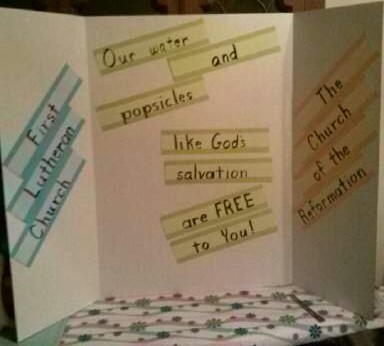 First
Lutheron
Church
Our water
and
popsicles
like God's
salvation
are FREE
to You!
The
Church
of the
Reformation